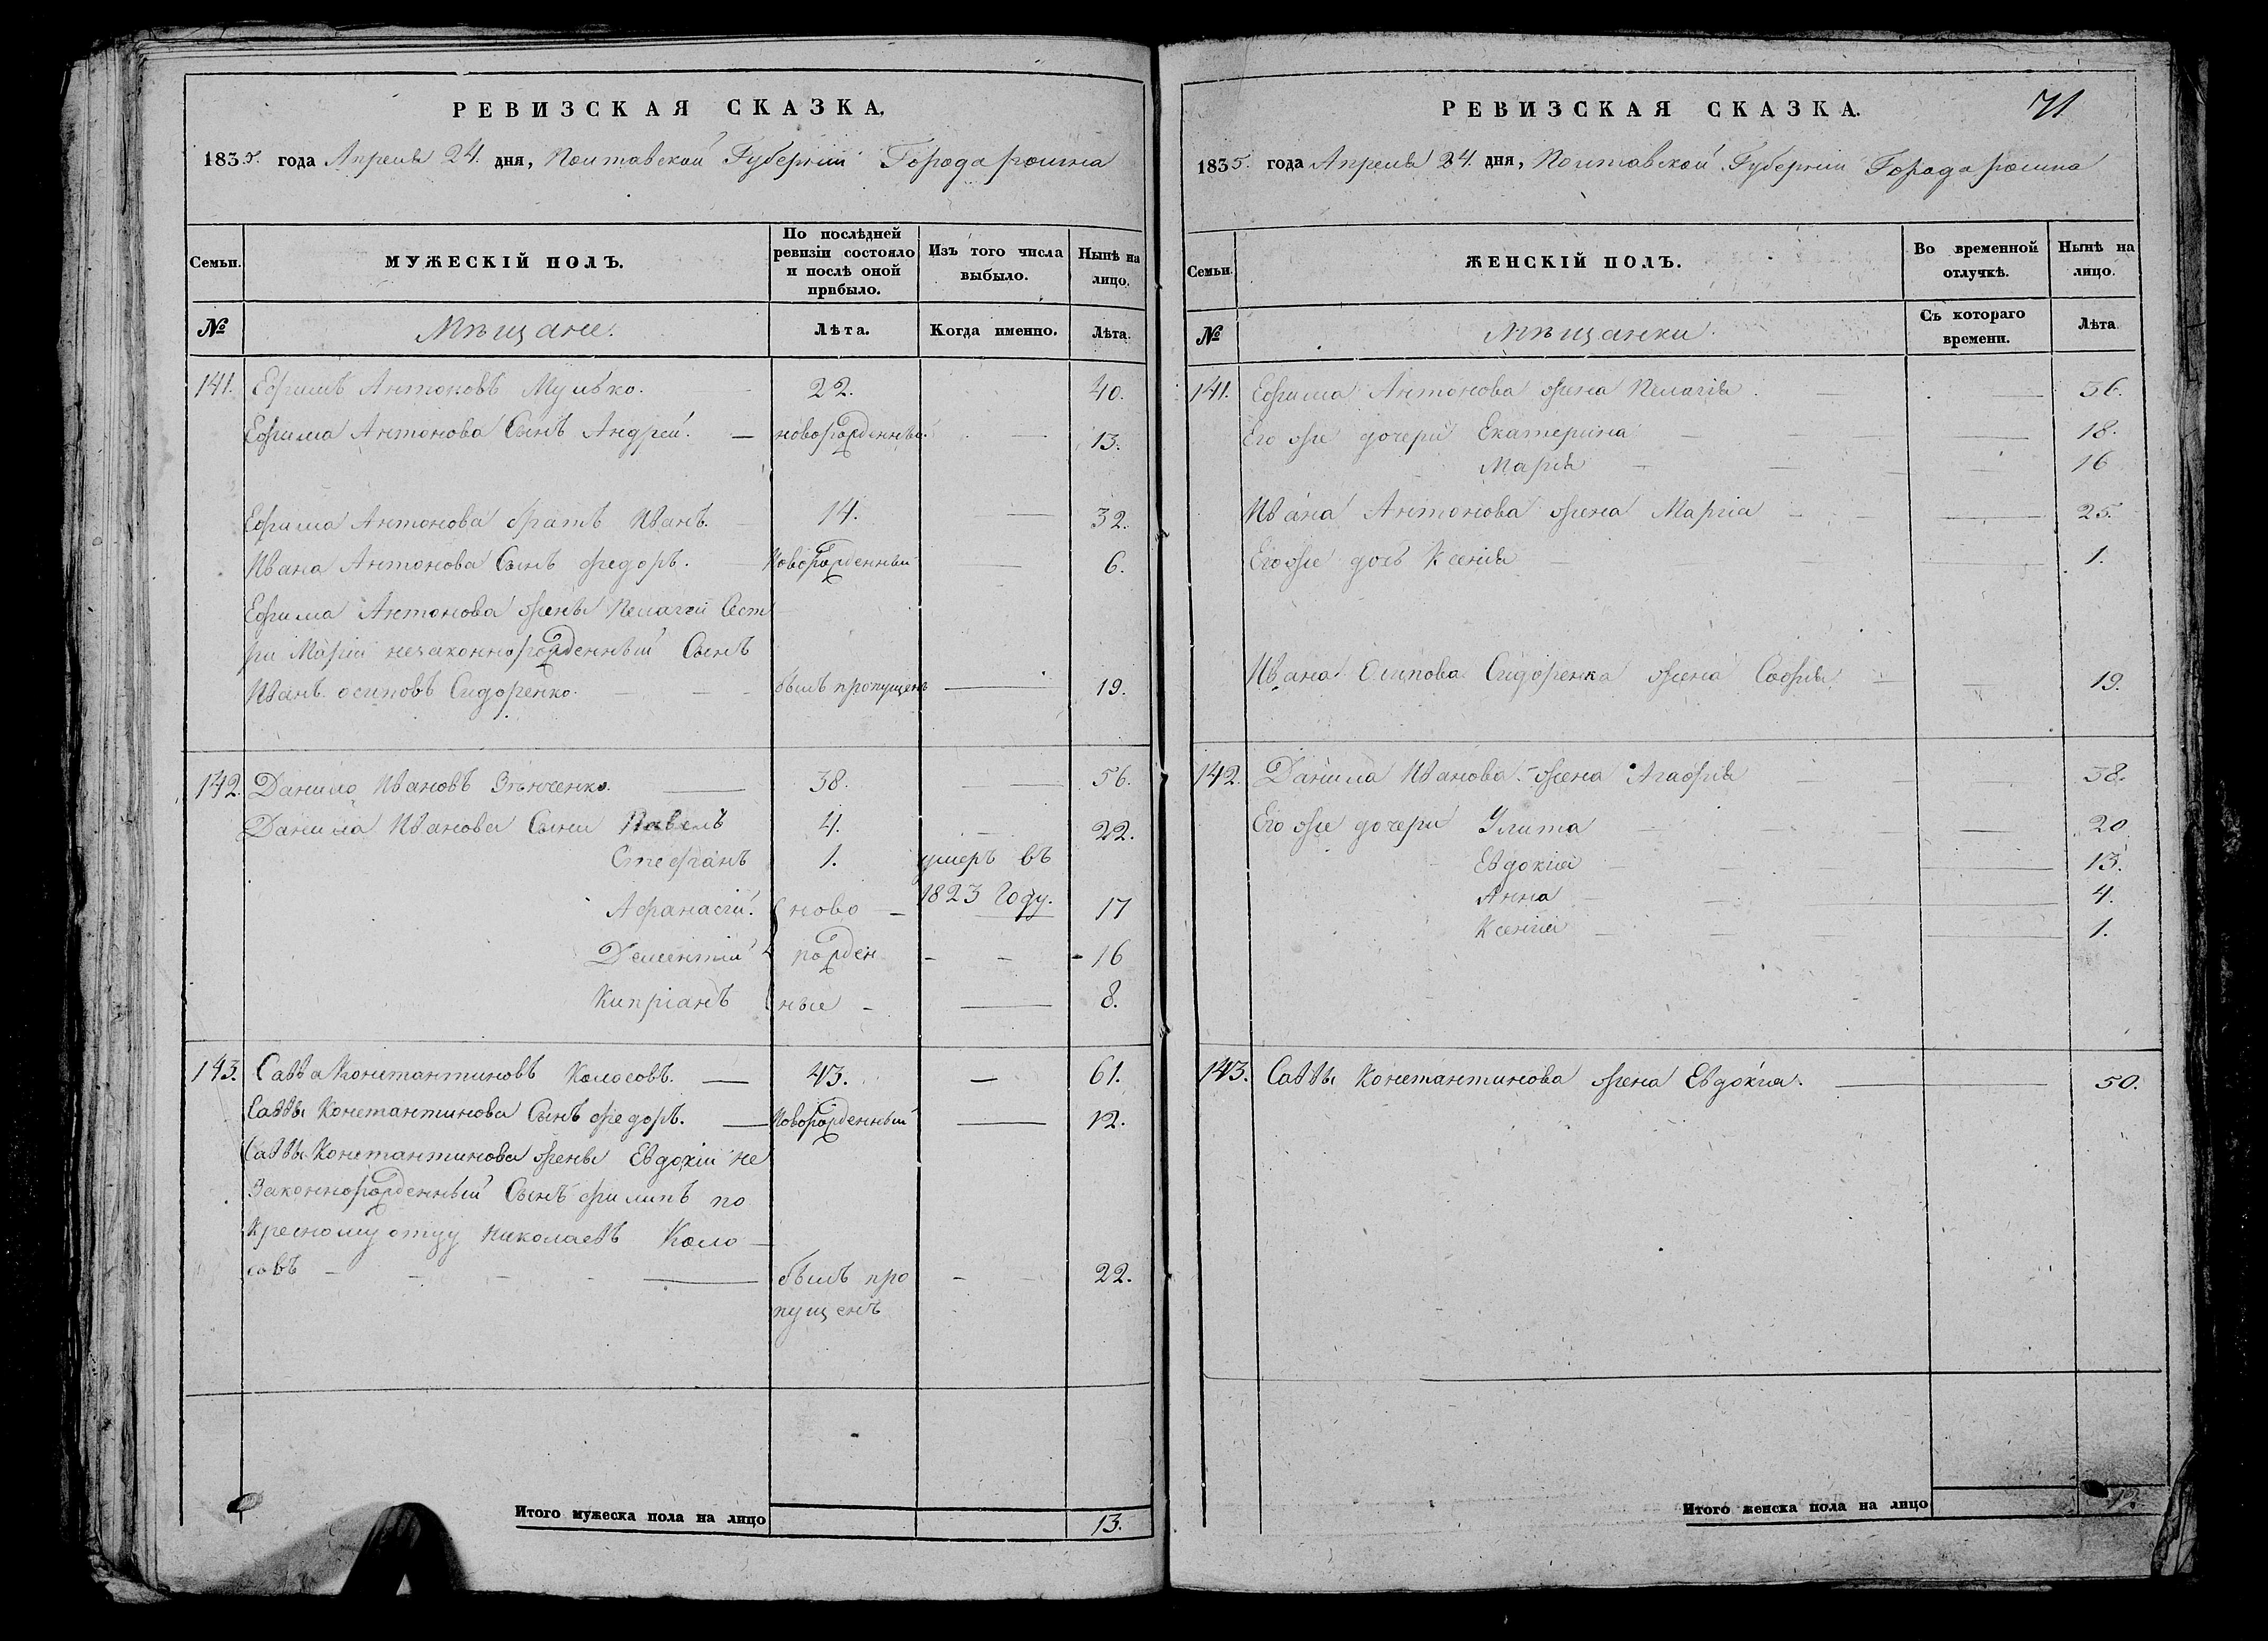 РЕВИЗСКАЯ СКАЗКА.
1835. года Апреля 24. дня, Полтавской Губернии Города ромна
Семьи.
МУЖЕСКІЙ ПОЛЪ.
По послѣдней
ревизіи состояло
и послѣ оной
прибыло.
Изъ того числа
выбыло.
Нынѣ на
лицо.
№
Мѣщане.
Лѣта.
Когда именно.
Лѣта.
141. Ефимъ Антоновъ Мулько. 22. 40.
Ефима Антонова Сынъ Андрей. — новорожденный 13.
Ефима Антонова братъ Иванъ. 14. — 32.
Ивана Антонова Сынъ Федоръ. Новорожденный — 6.
Ефима Антонова жены Пелагеи Сест
ри Маріи незаконнорожденный Сынъ
Иванъ осиповъ Сидоренко. былъ пропущенъ — 19.
142. Данило Ивановъ — 38. — 56.
Данила Иванова Сыни Павелъ 4. — 22.
Стефанъ 1. умеръ въ
1823 Году.
Афанасій. ново — 17
Дементій рожден — — 16
Кипріанъ ные — — 8.
143. Савва Константиновъ Колосовъ. — 43. — 61.
Саввы Константинова Сынъ Федоръ. — Новорожденный — 12.
Саввы Константинова жены Евдокіи не
Законнорожденный Сынъ Филипъ по
Кресному отцу Николаевъ Коло
совъ — былъ про — 22.
пущенъ
Итого мужеска пола на лицо 13.
РЕВИЗСКАЯ СКАЗКА.
71
1835. года Апреля 24. дня, Полтавской Губернии Города ромна
Семьи.
ЖЕНСКІЙ ПОЛЪ.
Во временной
отлучкѣ.
Нынѣ на
лицо.
№
Мѣщанки.
Съ котораго
времени.
Лѣта.
141. Ефима Антонова жена Пелагія. — 36.
Его же дочери Екатерина — 18.
Марія — 16
Ивана Антонова жена Марія — 25.
Его же дочь Ксенія — 1.
Ивана Осипова Сидоренка жена Софія — 19.
142. Данила Иванова жена Агафія 38.
Его же дочери Улита — 20
Евдокія — 13.
Анна — 4.
Ксенія — 1.
143. Саввы Константинова жена Евдокія. — 50.
Итого женска пола на лицо